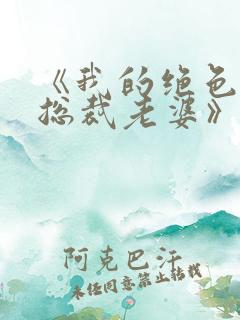 《我的绝色
总裁老婆》
阿克巴汗
未经同意禁止转载